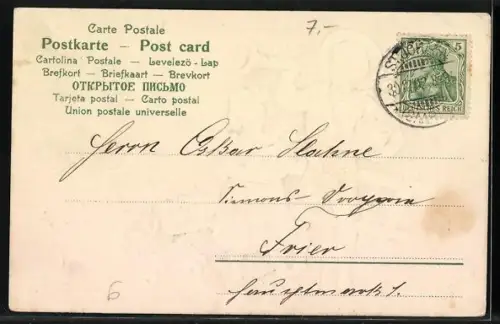 7.-
Carte Postale
Postkarte — Post card
Cartolina Postale — Levelező-Lap
Brefkort — Briefkaart — Brevkort
ОТКРЫТОЕ ПИСЬМО
Tarjeta postal — Carto postal
Union postale universelle
5
REICH
Herrn Oskar Hahne
Simons-
Trier
Hauptmarkt 1.
6